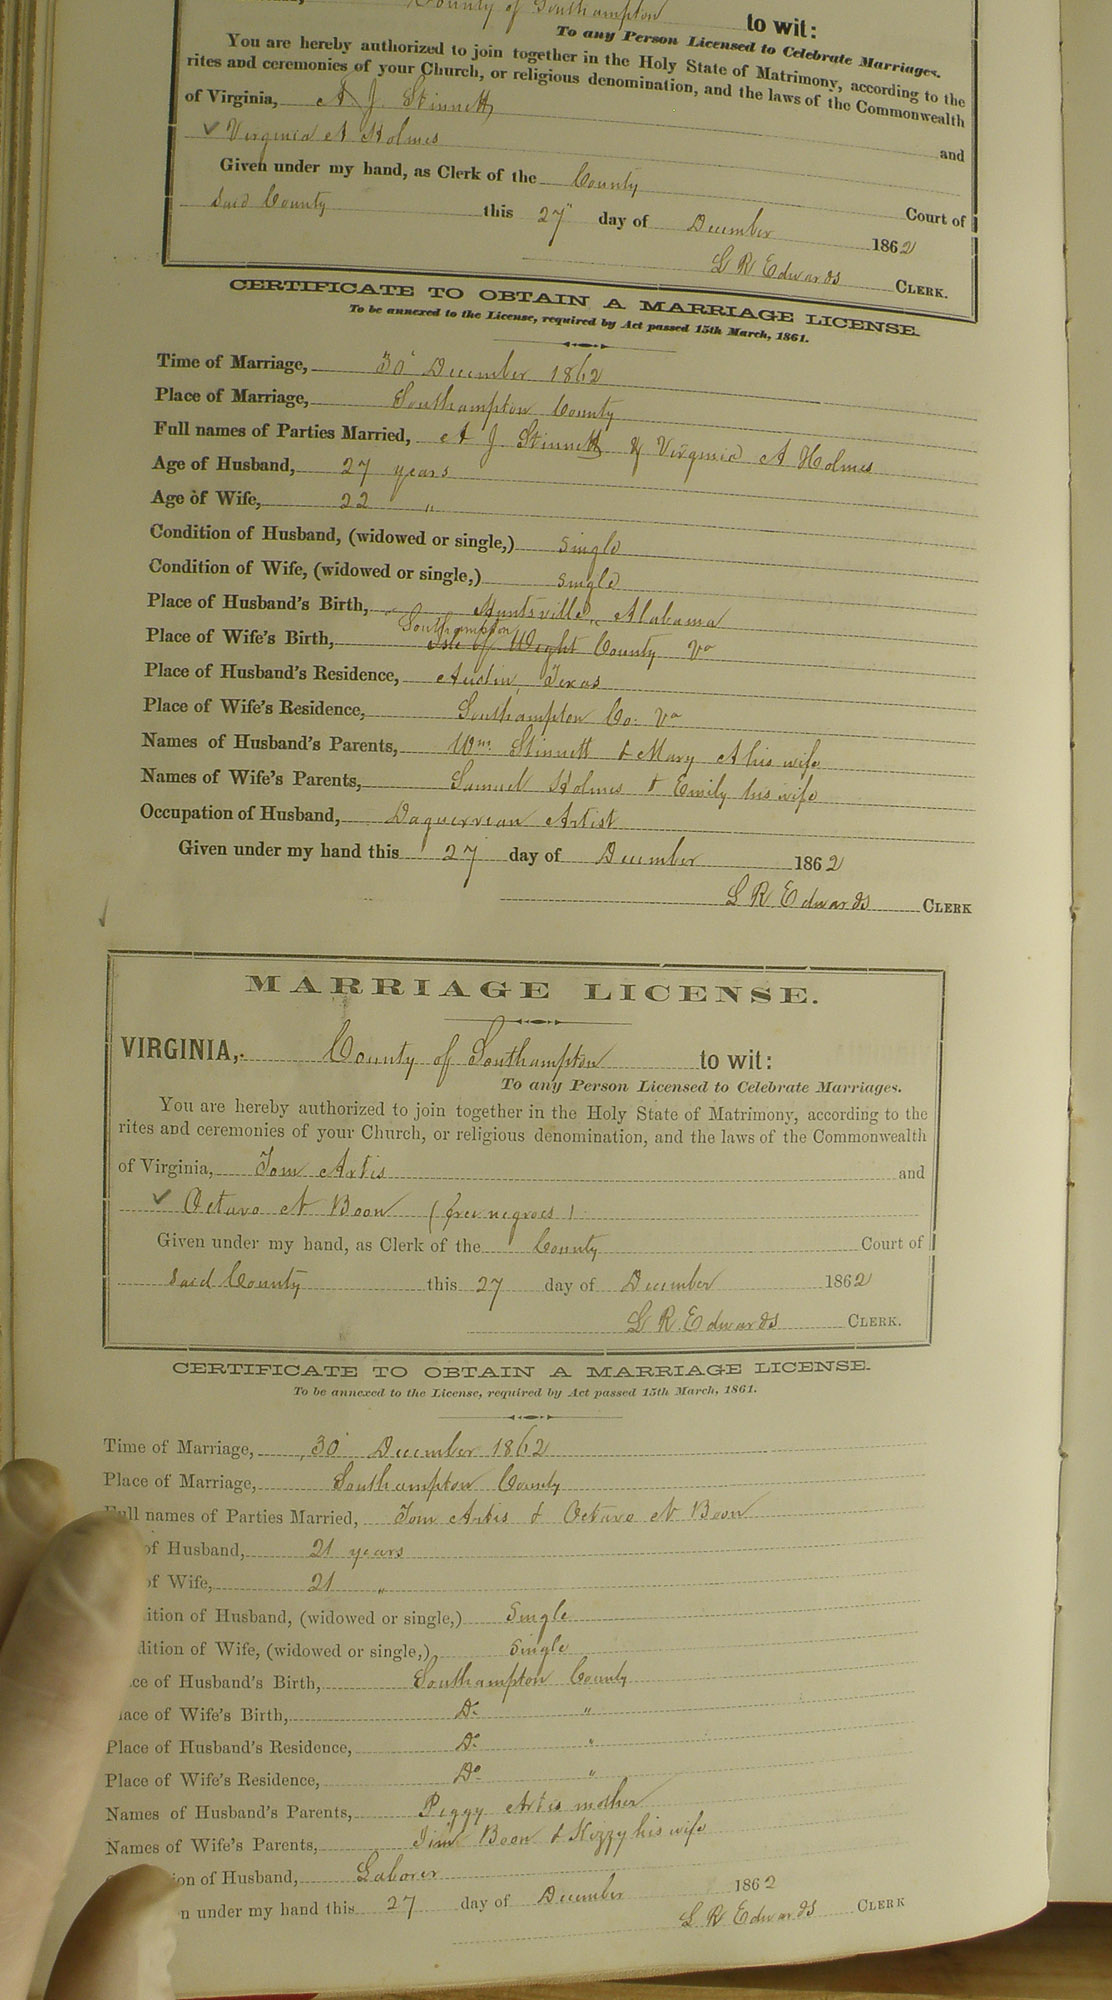 County of Southampton to wit:
To any Person Licensed to Celebrate Marriages.
You are hereby authorized to join together in the Holy State of Matrimony, according to the
rites and ceremonies of your Church, or religious denomination, and the laws of the Commonwealth
of Virginia, A J Stinnett and
✓ Virginia A Holmes
Given under my hand, as Clerk of the County Court of
said County this 27" day of December 1862
L R Edwards CLERK.
CERTIFICATE TO OBTAIN A MARRIAGE LICENSE.
To be annexed to the License, required by Act passed 15th March, 1861.
Time of Marriage, 30' December 1862
Place of Marriage, Southampton County
Full names of Parties Married, A J Stinnett & Virginia A Holmes
Age of Husband, 27 years
Age of Wife, 22 "
Condition of Husband, (widowed or single,) single
Condition of Wife, (widowed or single,) single
Place of Husband's Birth, Huntsville, Alabama
Southampton
Place of Wife's Birth, Isle of Wight County Va
Place of Husband's Residence, Austin, Texas
Place of Wife's Residence, Southampton Co: Va
Names of Husband's Parents, Wm Stinnett & Mary A his wife
Names of Wife's Parents, Samuel Holmes & Emily his wife
Occupation of Husband, Daguerrean Artist
Given under my hand this 27 day of December 1862
L R Edwards CLERK
MARRIAGE LICENSE.
VIRGINIA, County of Southampton to wit:
To any Person Licensed to Celebrate Marriages.
You are hereby authorized to join together in the Holy State of Matrimony, according to the
rites and ceremonies of your Church, or religious denomination, and the laws of the Commonwealth
of Virginia, Tom Artis and
✓ Octavo A Boon (free negroes)
Given under my hand, as Clerk of the County Court of
said County this 27 day of December 1862
L R. Edwards CLERK.
CERTIFICATE TO OBTAIN A MARRIAGE LICENSE.
To be annexed to the License, required by Act passed 15th March, 1861.
Time of Marriage, 30' December 1862
Place of Marriage, Southampton County
Full names of Parties Married, Tom Artis & Octavo A Boon
of Husband, 21 years
of Wife, 21 "
ition of Husband, (widowed or single,) single
dition of Wife, (widowed or single,) single
ce of Husband's Birth, Southampton County
lace of Wife's Birth, Do "
Place of Husband's Residence, Do "
Place of Wife's Residence, Do "
Names of Husband's Parents, Peggy Artis mother
Names of Wife's Parents, Jim Boon & Kizzy his wife
ion of Husband, Laborer
n under my hand this 27 day of December 1862
L R Edwards CLERK